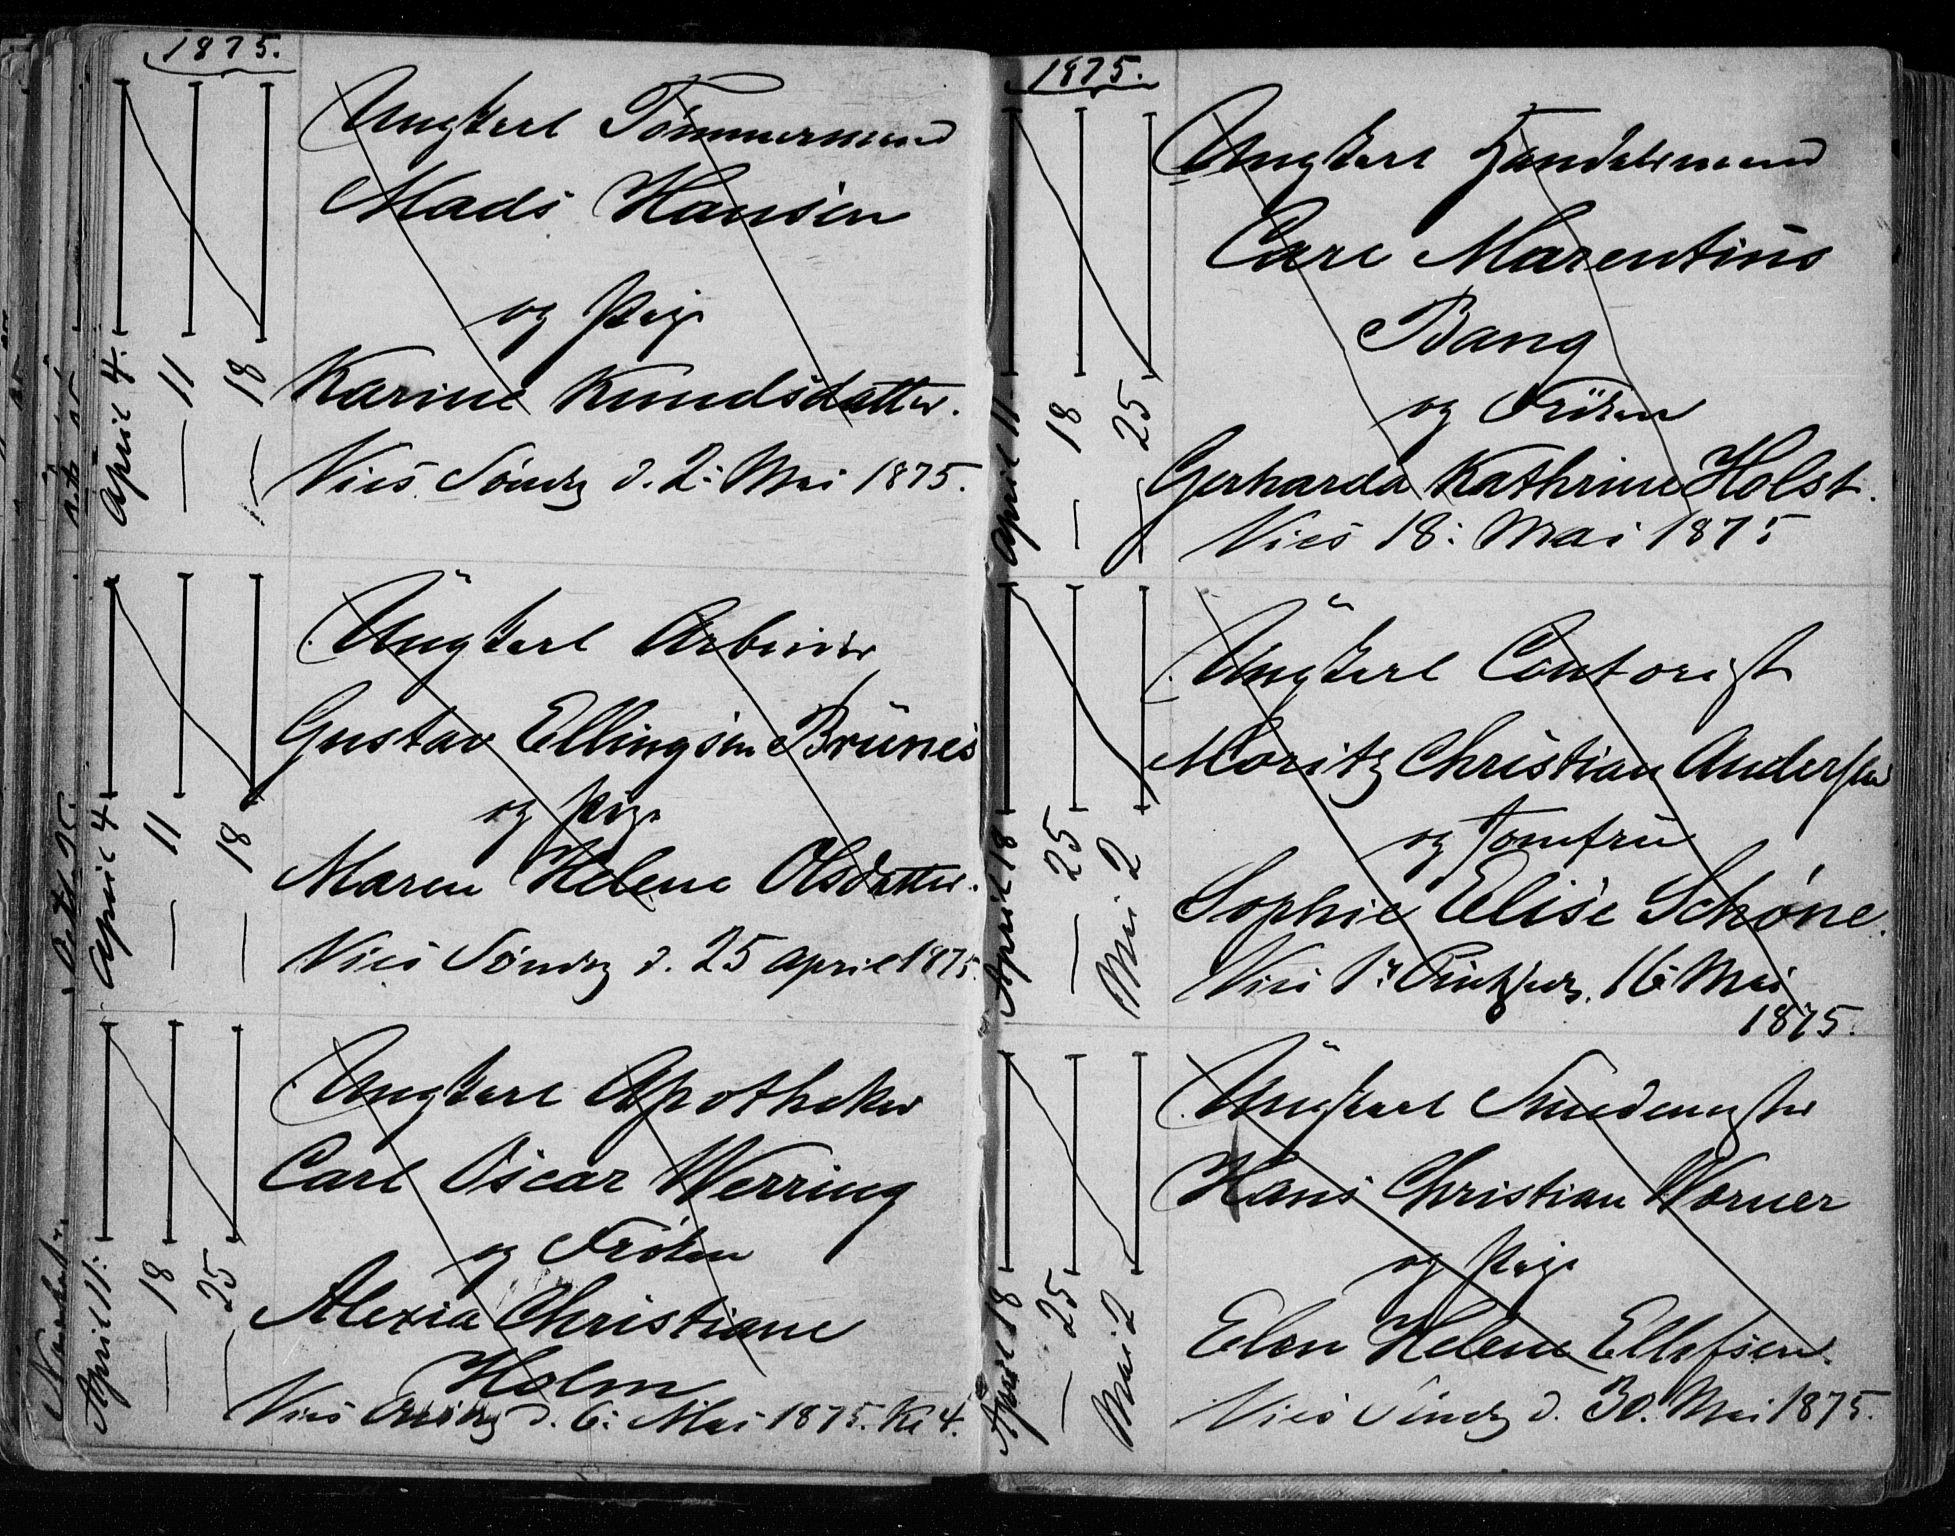 1875.
April 4.
— 11
— 18
Ungkarl Tømmermand
Mads Hansen
og Pige
Karine Knudsdatter.
Vies Søndag d. 2: Mai 1875.
April 4
— 11
— 18
Ungkarl Arbeider
Gustav Ellingsen Brünes
og Pige
Maren Helene Olsdatter.
Vies Søndag d. 25 april 1875.
April 11:
— 18
— 25
Ungkarl Apotheker
Carl Oscar Werring
og Frøken
Alexia Christiane
Holm
Vies d. 6: Mai 1875. Kl 4.
1875.
April 11.
— 18
— 25
Ungkarl Handelsmand
Carl Marentius
Bang
og Frøken
Gerharda Kathrine Holst.
Vies 18: Mai 1875
April 18
— 25
Mai 2
Ungkarl Contorist
Moritz Christian Andersen
og Jomfru
Sophie Elise Schøne.
Vies 1: 16 Mai
1875.
April 18
— 25
Mai 2
Ungkarl Smedemester
Hans Christian Worner
og Pige
Elen Helene Ellefsen.
Vies Søndag d. 30. Mai 1875.